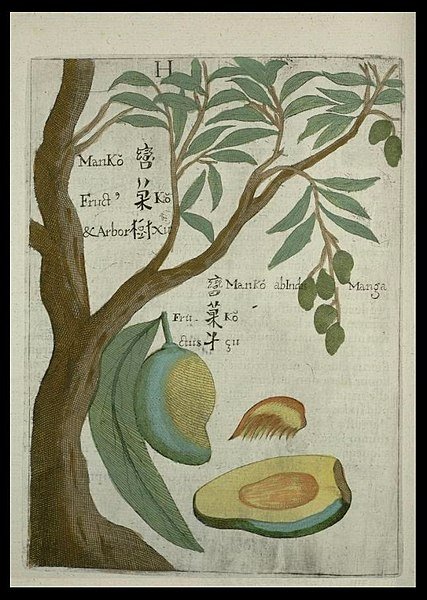 H
Mankŏ
Fruct' 菓 Kŏ
& Arbor 樹 xu
Mankŏ ab Indis Manga
Fru- 菓 Kŏ
ctus 子 çu